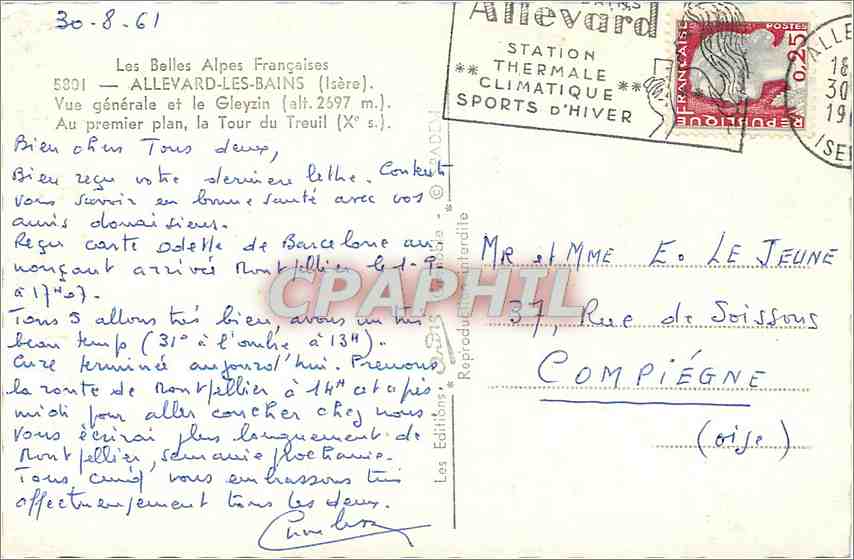 30-8-61
Les Belles Alpes Françaises
5801 — ALLEVARD-LES-BAINS (Isère).
Vue générale et le Gleyzin (alt. 2697 m.).
Au premier plan, la Tour du Treuil (Xe s.).
Bien chers Tous deux,
Bien reçu votre dernière lettre. Contents
vous savoir en bonne santé avec vos
amis douaisiens.
Reçu carte Odette de Barcelone an-
nonçant arrivée Montpellier le 1-9
à 17H07.
Tous 5 allons très bien, avons un très
beau temps (31° à l'ombre à 13H).
Cure terminée aujourd'hui. Prenons
la route de Montpellier à 14H cet après-
midi pour aller coucher chez nous.
Vous écrirai plus longuement de
Montpellier, semaine prochaine.
Tous cinq vous embrassons très
affectueusement tous les deux.
Les Editions
Reproduction interdite
Allevard
STATION
** THERMALE
CLIMATIQUE **
SPORTS D'HIVER
REPUBLIQUE FRANÇAISE
POSTES
0,25
ALLE
18
30
19
ISER
MR et MME E. LE JEUNE
37, Rue de Soissons
COMPIÉGNE
(oise)
CPAPHIL